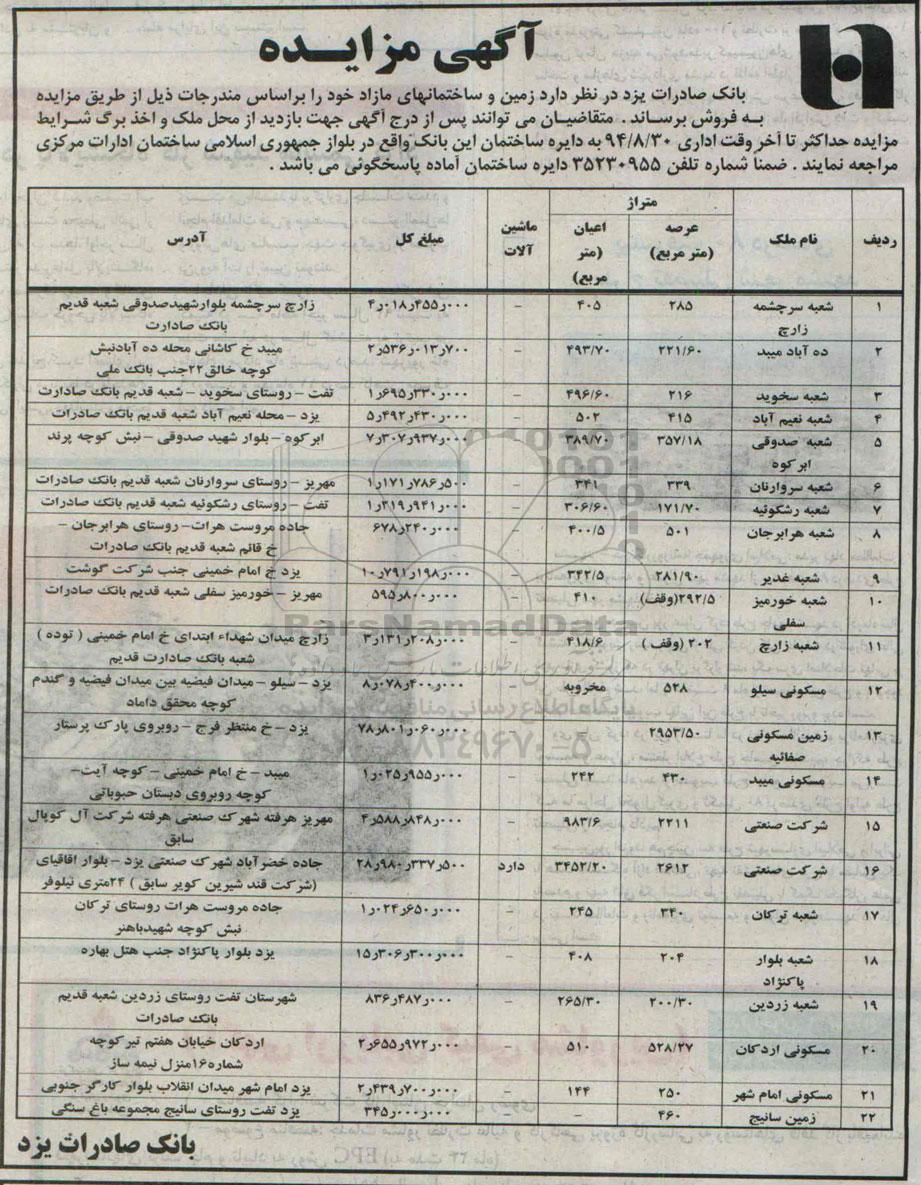 آگهی مزایده
بانک صادرات یزد در نظر دارد زمین و ساختمانهای مازاد خود را براساس مندرجات ذیل از طریق مزایده
به فروش برساند . متقاضیان می توانند پس از درج آگهی جهت بازدید از محل ملک و اخذ برگ شرایط
مزایده حداکثر تا آخر وقت اداری ۹۴/۸/۳۰ به دایره ساختمان این بانک واقع در بلوار جمهوری اسلامی ساختمان ادارات مرکزی
مراجعه نمایند . ضمنا شماره تلفن ۳۵۲۳۰۹۵۵ دایره ساختمان آماده پاسخگوئی می باشد .
ردیف نام ملک متراژ عرصه (متر مربع) اعیان (متر مربع) ماشین آلات مبلغ کل آدرس
۱ شعبه سرچشمه زارچ ۲۸۵ ۴۰۵ – ۴٫۰۱۸٫۴۵۵٫۰۰۰ زارچ سرچشمه بلوارشهیدصدوقی شعبه قدیم بانک صادارت
۲ ده آباد میبد ۲۲۱/۶۰ ۴۹۳/۷۰ – ۲٫۵۳۶٫۰۱۳٫۷۰۰ میبد خ کاشانی محله ده آبادنبش کوچه خالق۲۲جنب بانک ملی
۳ شعبه سخوید ۲۱۶ ۴۹۶/۶۰ – ۱٫۶۹۵٫۳۳۰٫۰۰۰ تفت – روستای سخوید – شعبه قدیم بانک صادارت
۴ شعبه نعیم آباد ۴۱۵ ۵۰۲ – ۵٫۴۹۲٫۴۳۰٫۰۰۰ یزد – محله نعیم آباد شعبه قدیم بانک صادرات
۵ شعبه صدوقی ابرکوه ۳۵۷/۱۸ ۳۸۹/۷۰ – ۷٫۳۰۷٫۹۳۷٫۰۰۰ ابرکوه – بلوار شهید صدوقی – نبش کوچه پرند
۶ شعبه سروارنان ۳۳۹ ۳۴۱ – ۱٫۱۷۱٫۷۸۶٫۵۰۰ مهریز – روستای سروارنان شعبه قدیم بانک صادرات
۷ شعبه رشکوئیه ۱۷۱/۷۰ ۳۰۶/۶۰ – ۱٫۳۱۹٫۹۴۱٫۰۰۰ تفت – روستای رشکوئیه شعبه قدیم بانک صادرات
۸ شعبه هرابرجان ۵۰۱ ۴۰۰/۵ – ۶۷۸٫۲۴۰٫۰۰۰ جاده مروست هرات- روستای هرابرجان – خ قائم شعبه قدیم بانک صادرات
۹ شعبه غدیر ۲۸۱/۹۰ ۳۴۲/۵ – ۱۰٫۷۹۱٫۱۹۸٫۰۰۰ یزد خ امام خمینی جنب شرکت گوشت
۱۰ شعبه خورمیز سفلی ۲۹۲/۵(وقف) ۴۱۰ – ۵۹۵٫۸۰۰٫۰۰۰ مهریز – خورمیز سفلی شعبه قدیم بانک صادرات
۱۱ شعبه زارچ ۲۰۲ (وقف ) ۴۱۸/۶ – ۳٫۱۳۱٫۲۰۸٫۰۰۰ زارچ میدان شهداء ابتدای خ امام خمینی ( توده ) شعبه بانک صادارت قدیم
۱۲ مسکونی سیلو ۵۲۸ مخروبه – ۸٫۰۷۸٫۴۰۰٫۰۰۰ یزد – سیلو – میدان فیضیه بین میدان فیضیه و گندم کوچه محقق داماد
۱۳ زمین مسکونی صفائیه ۲۹۵۳/۵۰ – ۷۸٫۸۰۱٫۰۶۰٫۰۰۰ یزد – خ منتظر فرج – روبروی پارک پرستار
۱۴ مسکونی میبد ۴۳۰ ۲۴۲ – ۱٫۰۲۵٫۹۵۵٫۰۰۰ میبد – خ امام خمینی – کوچه آیت- کوچه روبروی دبستان حبوباتی
۱۵ شرکت صنعتی ۲۲۱۱ ۹۸۳/۶ – ۴٫۵۸۸٫۸۴۸٫۰۰۰ مهریز هرفته شهرک صنعتی هرفته شرکت آل کوپال سابق
۱۶ شرکت صنعتی ۲۶۱۲ ۳۴۵۲/۲۰ دارد ۲۸٫۹۸۰٫۳۳۷٫۵۰۰ جاده خضرآباد شهرک صنعتی یزد – بلوار اقاقیای (شرکت قند شیرین کویر سابق ) ۲۴متری نیلوفر
۱۷ شعبه ترکان ۳۴۰ ۲۴۵ – ۱٫۰۲۴٫۶۵۰٫۰۰۰ جاده مروست هرات روستای ترکان نبش کوچه شهیدباهنر
۱۸ شعبه بلوار پاکنژاد ۲۰۴ ۴۰۸ – ۱۵٫۳۰۶٫۳۰۰٫۰۰۰ یزد بلوار پاکنژاد جنب هتل بهاره
۱۹ شعبه زردین ۲۰۰/۳۰ ۲۶۵/۳۰ – ۸۳۶٫۴۸۷٫۰۰۰ شهرستان تفت روستای زردین شعبه قدیم بانک صادرات
۲۰ مسکونی اردکان ۵۲۸/۲۷ ۵۱۰ – ۲٫۶۵۵٫۹۷۲٫۰۰۰ اردکان خیابان هفتم تیرکوچه شماره۱۶منزل نیمه ساز
۲۱ مسکونی امام شهر ۲۵۰ ۱۴۴ – ۲٫۴۳۹٫۷۰۰٫۰۰۰ یزد امام شهر میدان انقلاب بلوار کارگر جنوبی
۲۲ زمین سانیج ۴۶۰ – – ۳۴۵٫۰۰۰٫۰۰۰ یزد تفت روستای سانیج مجموعه باغ سنگی
بانک صادرات یزد
ParsNamadData